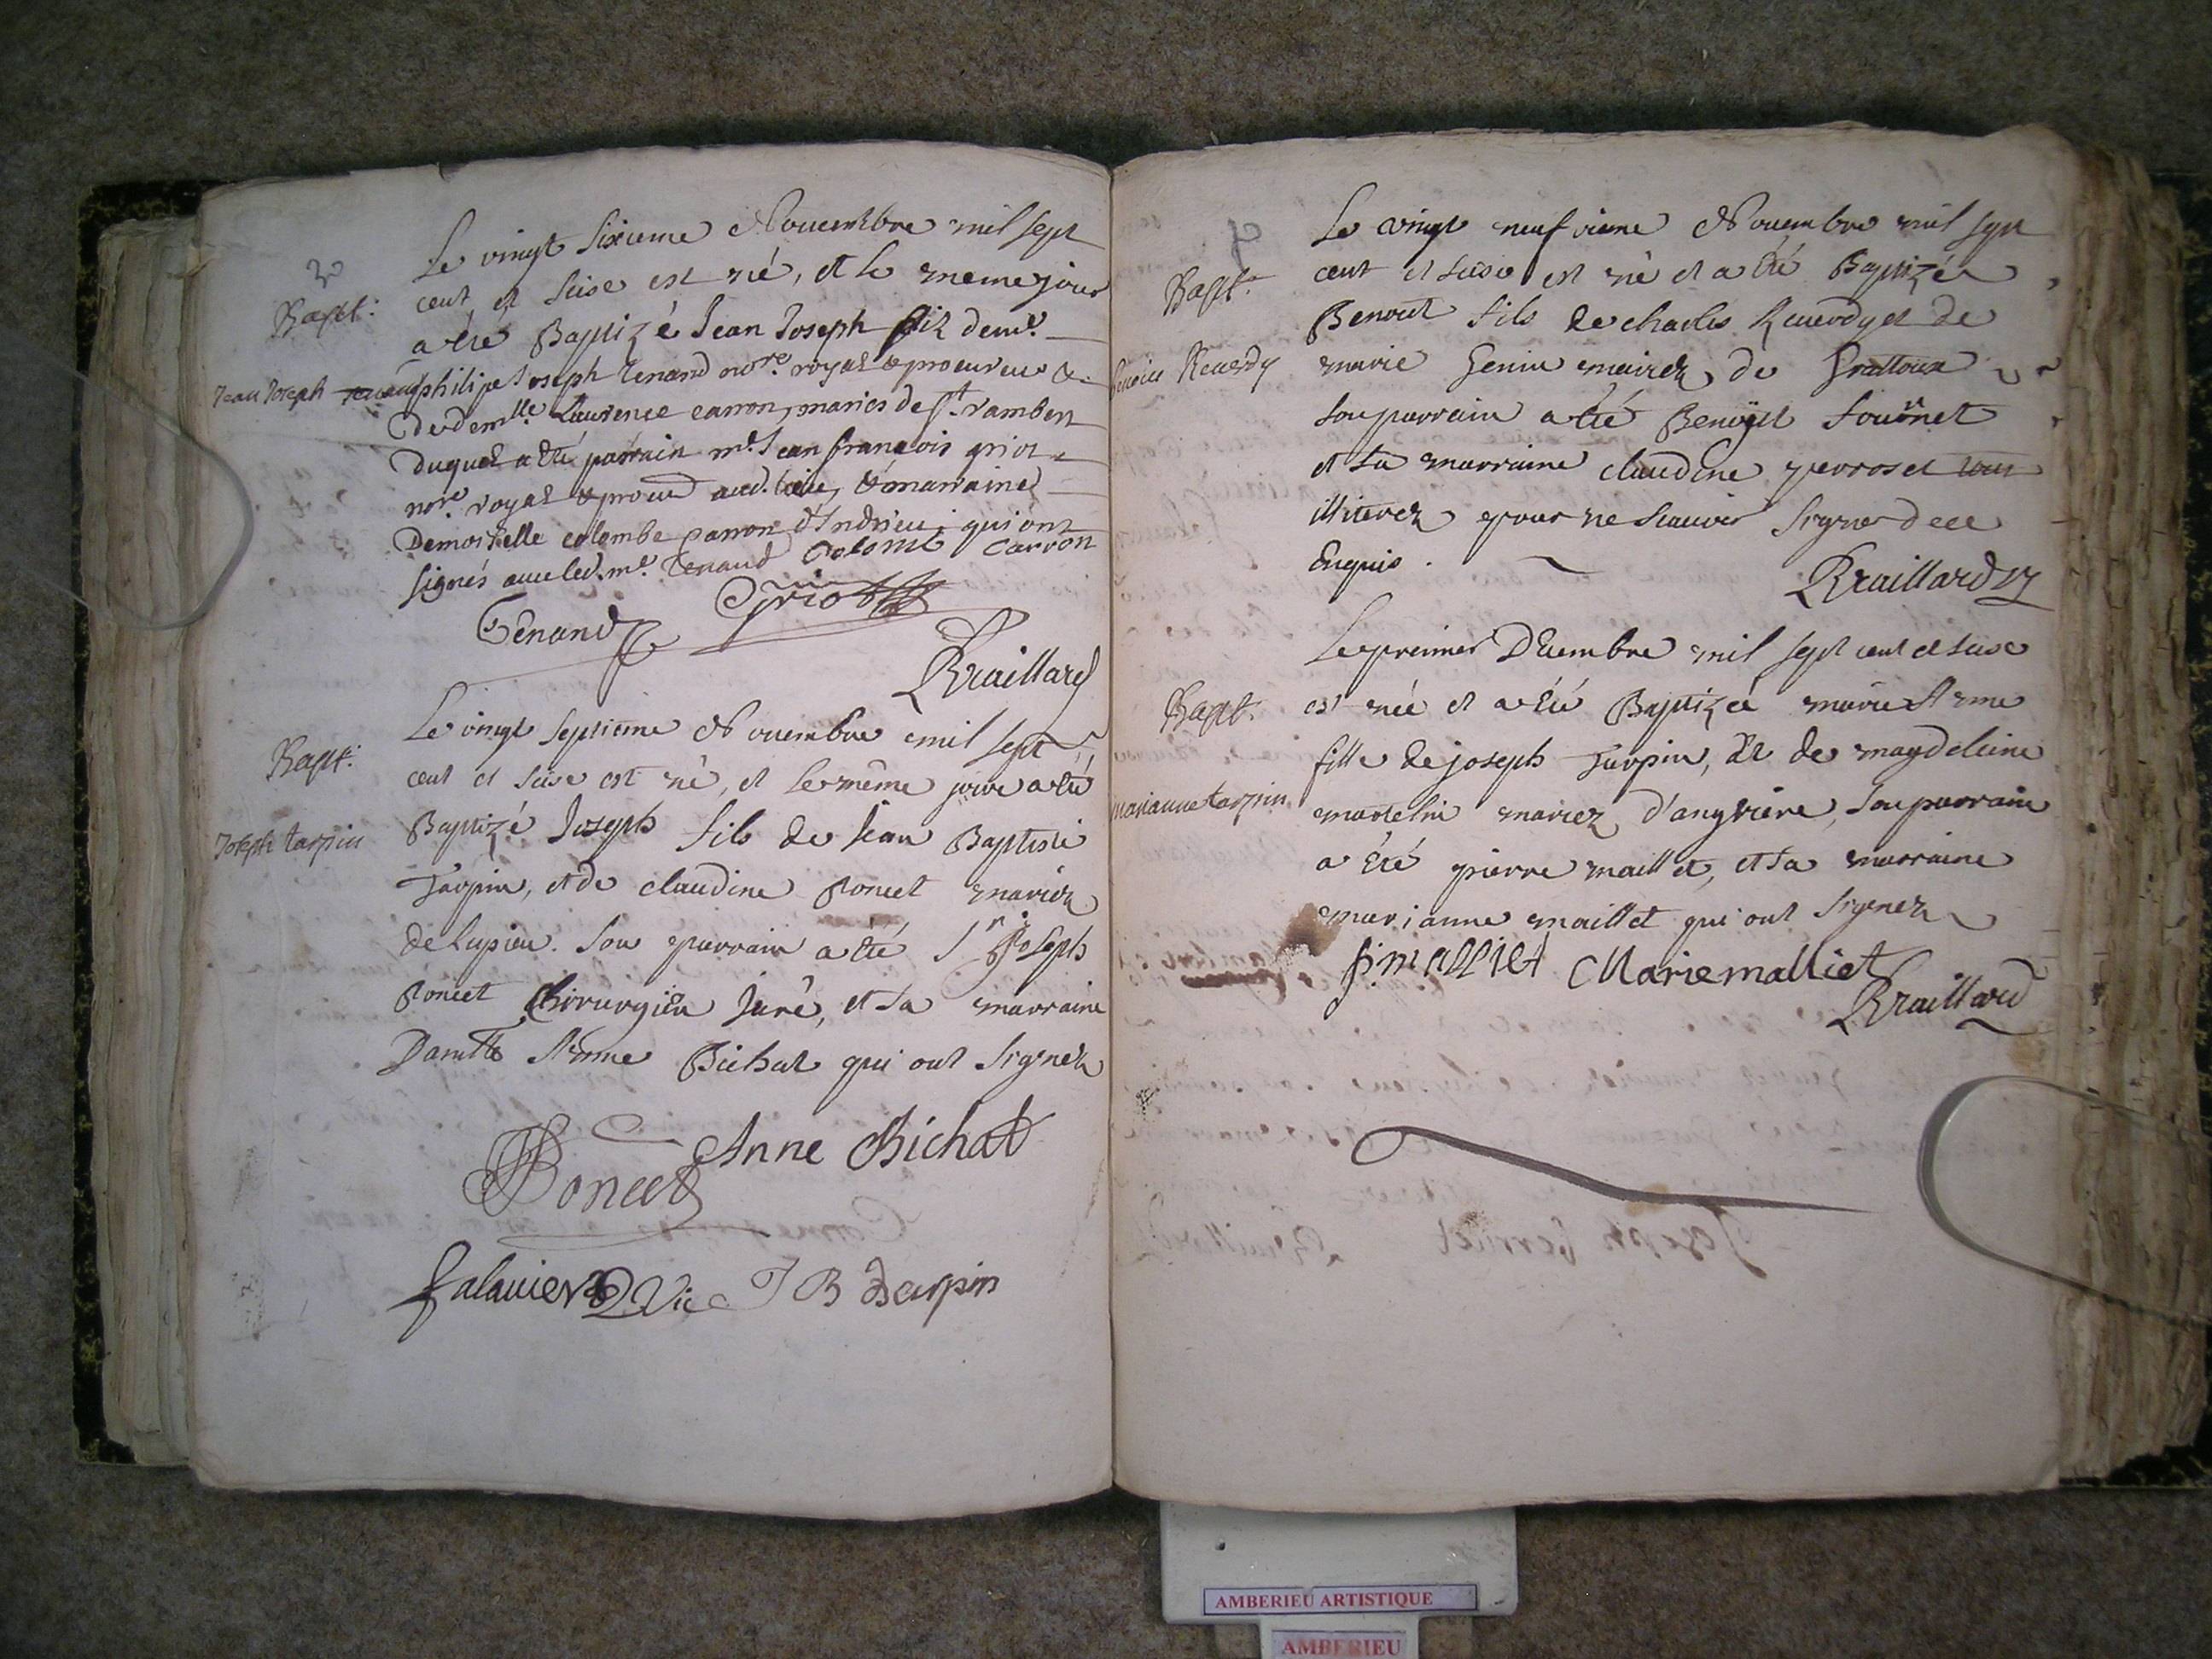 Le vingt sixieme Novembre mil sept
Bapt: cent et seise est né, et le meme jour
a été Baptizé Jean Joseph fils de m.e
Jean Joseph philipe Joseph Tenand no.re royal & procureur &
de dem.lle Laurence carron, mariés de S.t rambert
duquel a été parrain m.e Jean françois griot
no.re royal & procu.r aud. lieu, & marraine
Demoiselle colombe carron d'Indrieu; qui ont
signés avec led. m.e Tenand Colombe Carron
Tenand Griot
Braillard
Le vingt septieme Novembre mil sept
Bapt: cent et seise est né, et le même jour a été
Joseph tarpin Baptizé Joseph fils de Jean Baptiste
Tarpin, et de claudine Poncet mariez
de Lupieu. Son parrain a été S.r Joseph
Poncet Chirurgien Juré, et sa marraine
Anne Bichat qui ont signez
Anne Bichat
Poncet
J B Tarpin
Le vingt neufvieme Novembre mil sept
Bapt. cent et seise est né et a été Baptizé
Benoit fils de charles Reverdy et de
Benoit Reverdy marie Genin mariez de
son parrain a été Benoist fournet
et sa marraine claudine perroset
illiterez pour ne scavoir signer de ce
Enquis.
Braillard
Le premier Décembre mil sept cent et seise
Bapt. est née et a été Baptizée marie Anne
fille de joseph Tarpin, et de magdeleine
marianne tarpin martelin mariez d'angrière, son parrain
a été pierre maillet, et sa marraine
marianne maillet qui ont signez
p. malliet Marie malliet
Braillard
AMBERIEU ARTISTIQUE
AMBERIEU